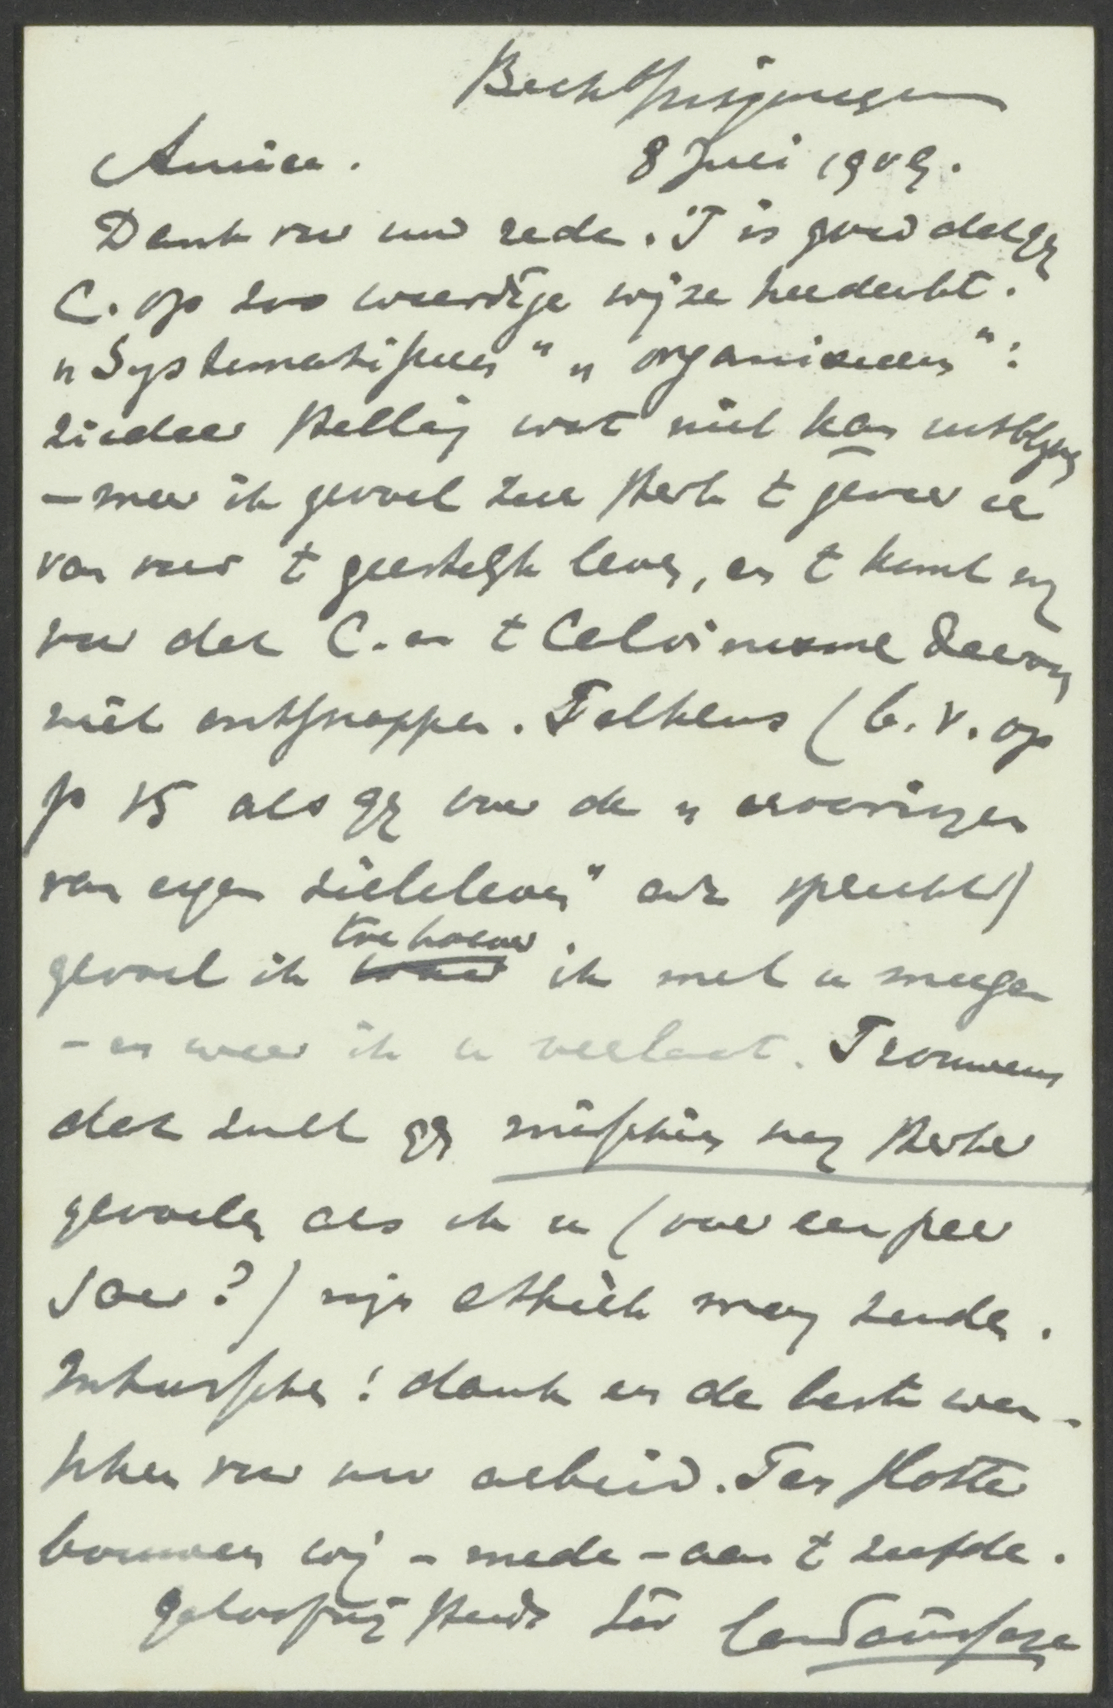 Amice. 8 Juli 1909.
Dank voor uw rede. 'T is goed dat gij
C. op zoo waardige wijze herdacht.
„Systematiseeren" „organiseeren":
ziedaar stellig wat niet kan uitblijven
– maar ik gevoel zeer sterk 't gevaar er
van voor 't geestelijk leven, en 't komt mij
voor dat C. en 't Calvinisme daaraan
niet ontsnappen. Telkens (b.v. op
p 15 als gij over de „ervaringen
van eigen zieleleven" enz spreekt)
gevoel ik toe hoever ik met u meega
– en waar ik u verlaat. Trouwens
dat zult gij misschien nog sterker
gevoelen als ik u (over een paar
jaar?) mijn ethiek mag zenden.
Intusschen: dank en de beste wen-
schen voor uw arbeid. Ten slotte
bouwen wij – mede – aan 't zelfde.
Geloof mij steeds